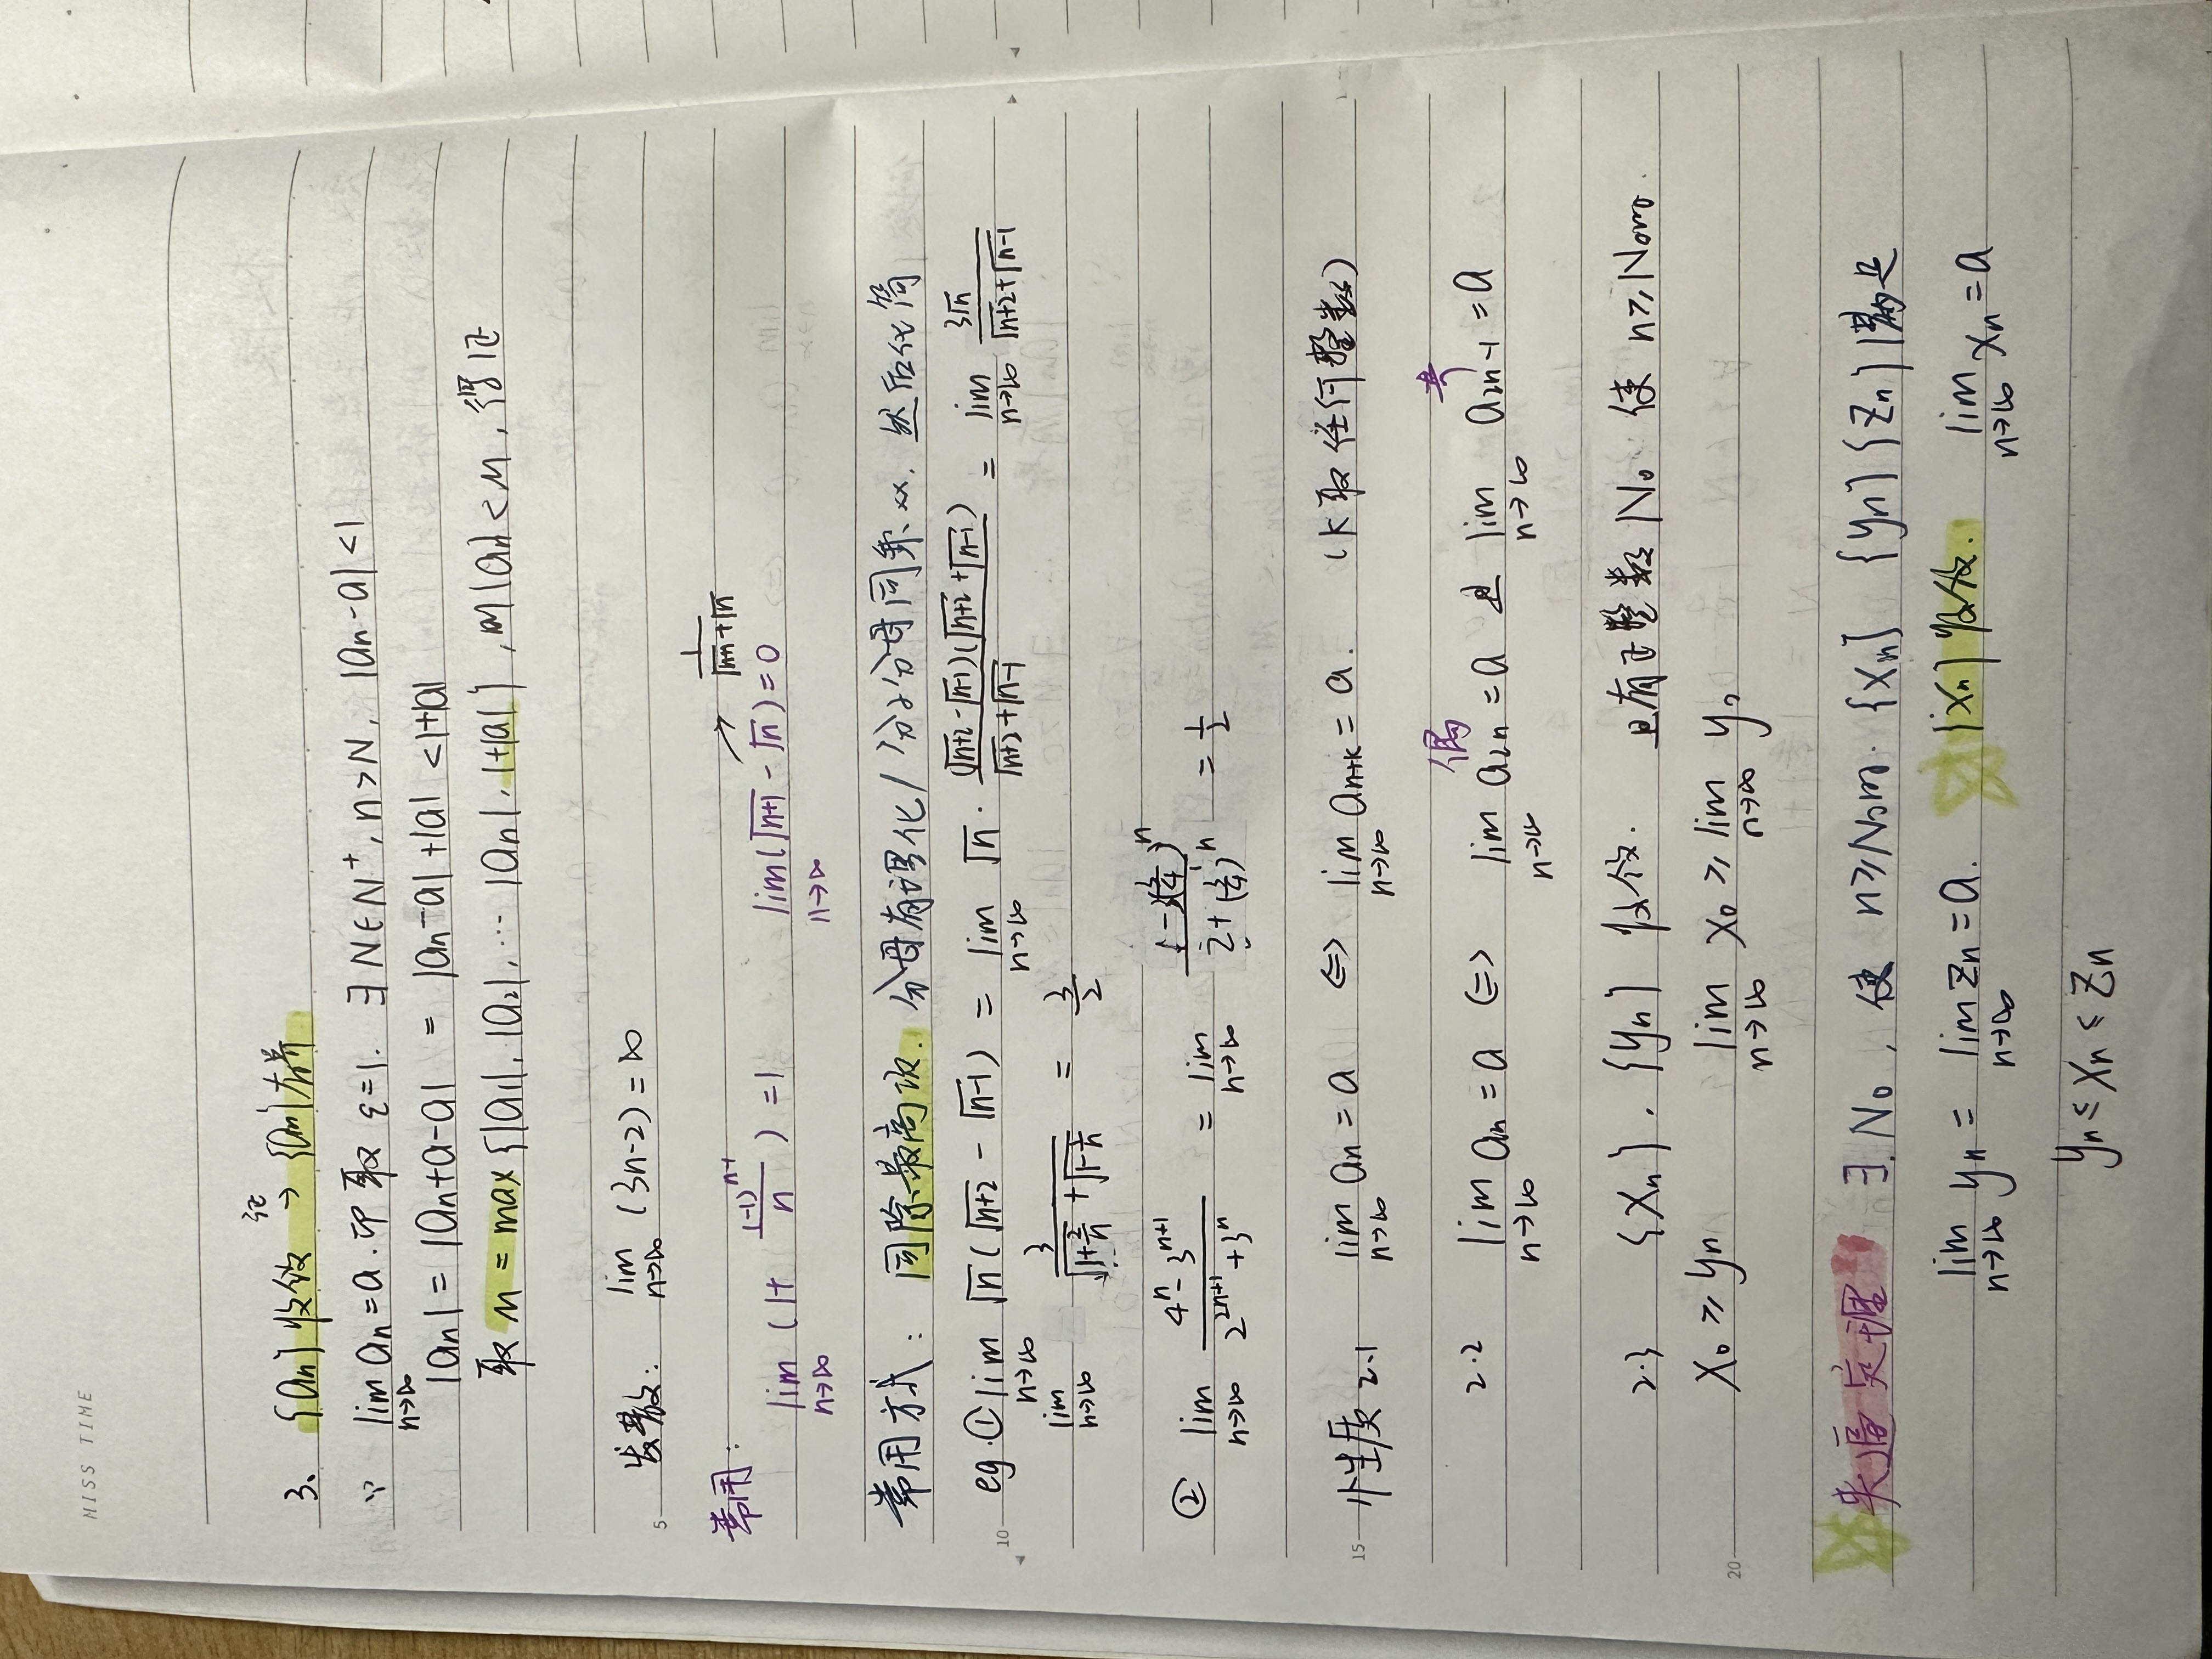 MISS TIME
3、{an}收敛 证→ {an}有界
∵ lim n→∞ an=a. 即取 ε=1. ∃ N∈N⁺, n>N, |an-a|<1
|an| = |an+a-a| = |an-a|+|a| <1+|a|
取 M = max{|a1|, |a2|, … |an|, 1+|a|}, 则|an|<M, 得证
5
发散: lim n→∞ (3n-2)=∞
常用: lim n→∞ (1+ (-1)ⁿ⁺¹/n ) =1 lim n→∞ (√n+1 - √n)=0 → 1/(√n+1+√n)
常用方式: 同除最高次. 分母有理化/分子分母同乘xx. 然后化简
10
eg.① lim n→∞ √n(√n+2 - √n-1) = lim n→∞ √n · (√n+2-√n-1)(√n+2+√n-1)/(√n+2+√n-1) = lim n→∞ 3√n/(√n+2+√n-1)
lim n→∞ 3/(√1+2/n +√1-1/n) = 3/2
② lim n→∞ (4ⁿ-3ⁿ⁺¹)/(2²ⁿ⁺¹+3ⁿ) = lim n→∞ (1-3(3/4)ⁿ)/(2+(3/4)ⁿ) = 1/2
15
性质 2.1 lim n→∞ an=a ⇔ lim n→∞ an+k=a. (k取任何整数)
2.2 lim n→∞ an=a ⇔ lim n→∞ a2n=a 偶 且 lim n→∞ a2n-1=a 奇
2.3 {Xn}, {yn} 收敛. 且有正整数 N₀ 使 n≥N₀时.
20
X₀ ≥ yn lim n→∞ X₀ ≥ lim n→∞ y₀
夹逼定理 ∃ N₀, 使 n≥N₀时. {Xn} {yn} {Zn}满足
lim n→∞ yn = lim n→∞ Zn=a. {Xn}收敛. lim n→∞ Xn=a
yn≤Xn≤Zn